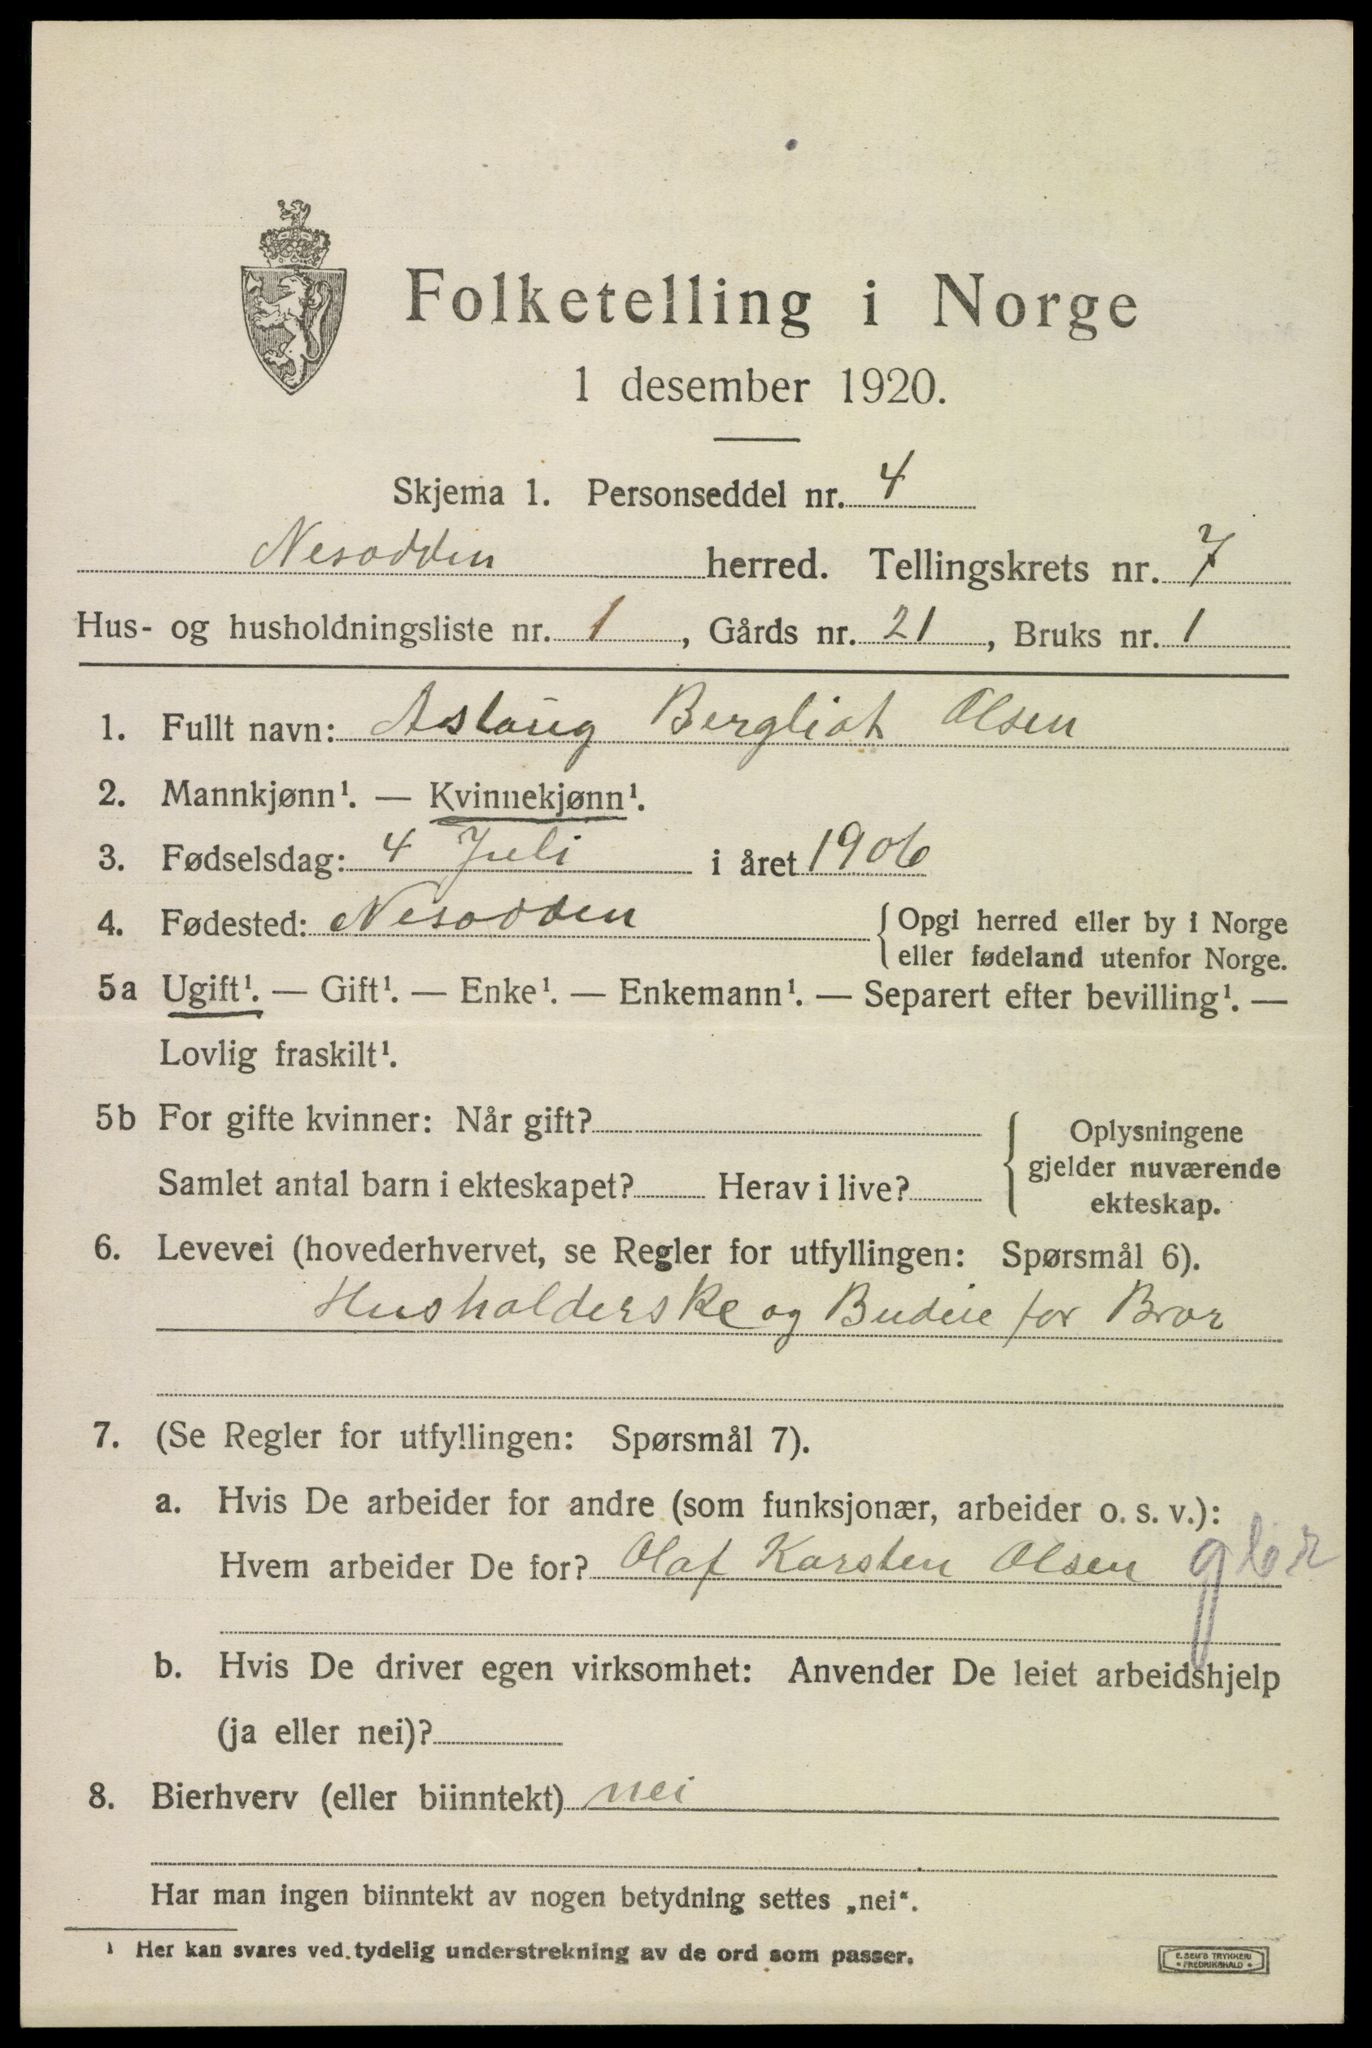 Folketelling i Norge
1 desember 1920.
Skjema 1. Personseddel nr. 4
Nesodden herred. Tellingskrets nr. 7
Hus- og husholdningsliste nr. 1, Gårds nr. 21, Bruks nr. 1
1. Fullt navn: Aslaug Bergliot Olsen
2. Mannkjønn¹. — Kvinnekjønn¹.
3. Fødselsdag: 4 Juli i året 1906
4. Fødested: Nesodden {Opgi herred eller by i Norge
eller fødeland utenfor Norge.
5a Ugift¹. — Gift¹. — Enke¹. — Enkemann¹. — Separert efter bevilling¹. —
Lovlig fraskilt¹.
5b For gifte kvinner: Når gift?
Samlet antal barn i ekteskapet? Herav i live?
{Oplysningene
gjelder nuværende
ekteskap.
6. Levevei (hovederhvervet, se Regler for utfyllingen: Spørsmål 6).
Husholderske og Budeie for Bror
7. (Se Regler for utfyllingen: Spørsmål 7).
a. Hvis De arbeider for andre (som funksjonær, arbeider o. s. v.):
Hvem arbeider De for? Olaf Karsten Olsen
b. Hvis De driver egen virksomhet: Anvender De leiet arbeidshjelp
(ja eller nei)?
8. Bierhverv (eller biinntekt) nei
Har man ingen biinntekt av nogen betydning settes „nei“.
¹ Her kan svares ved tydelig understrekning av de ord som passer.
E. SEM'S TRYKKERI
• FREDRIKSHALD •